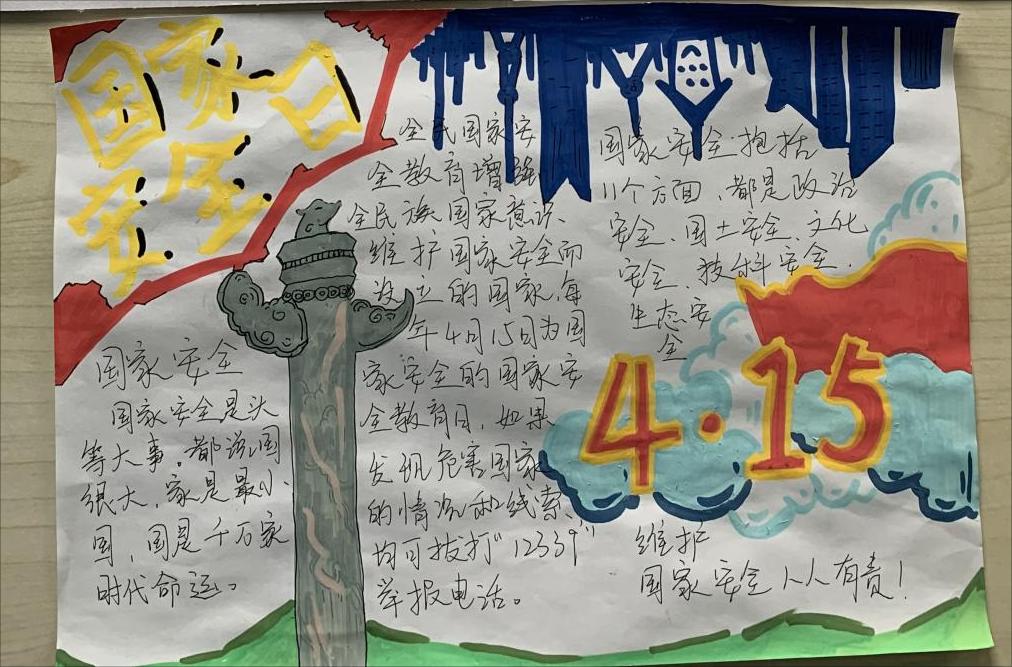 国家安全日
国家安全
国家安全是头
等大事。都说国
很大,家是最小
国,国是千万家
时代命运。
全民国家安
全教育增强
全民族国家意识、
维护国家安全而
设立的国家,每
年4月15日为国
家安全的国家安
全教育日,如果
发现危害国家
的情况和线索、
均可拔打"12339"
举报电话。
国家安全抱括
11个方面、都是政治
安全、国土安全、文化
安全、技科安全、
生态安
全
4·15
维护
国家安全人人有责!